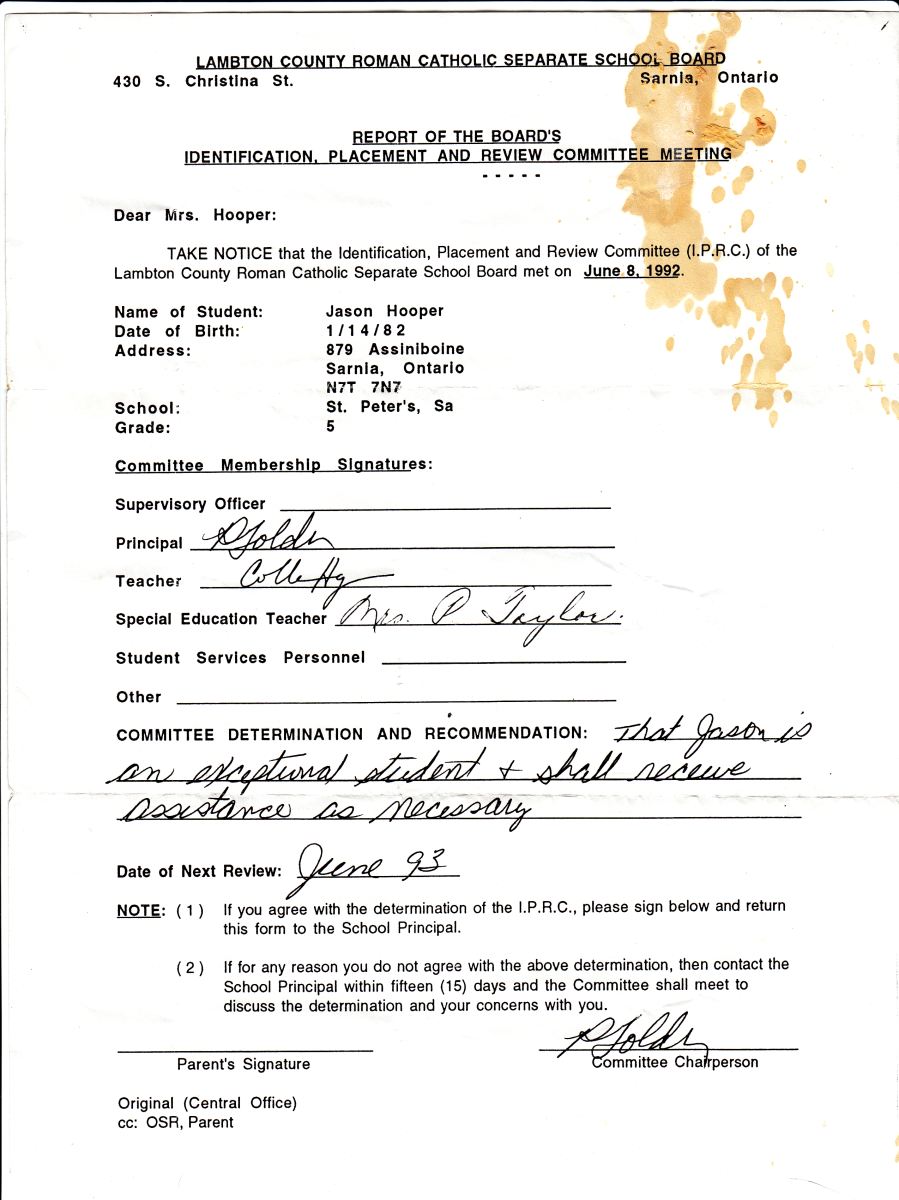 LAMBTON COUNTY ROMAN CATHOLIC SEPARATE SCHOOL BOARD
430 S. Christina St. Sarnia, Ontario
REPORT OF THE BOARD'S
IDENTIFICATION, PLACEMENT AND REVIEW COMMITTEE MEETING
- - - - -
Dear Mrs. Hooper:
TAKE NOTICE that the Identification, Placement and Review Committee (I.P.R.C.) of the
Lambton County Roman Catholic Separate School Board met on June 8, 1992.
Name of Student: Jason Hooper
Date of Birth: 1/14/82
Address: 879 Assiniboine
Sarnia, Ontario
N7T 7N7
School: St. Peter's, Sa
Grade: 5
Committee Membership Signatures:
Supervisory Officer
Principal
Teacher
Special Education Teacher Mrs. P Taylor.
Student Services Personnel
Other
COMMITTEE DETERMINATION AND RECOMMENDATION: That Jason is
an exceptional student + shall receive
assistance as necessary
Date of Next Review: June 93
NOTE: (1) If you agree with the determination of the I.P.R.C., please sign below and return
this form to the School Principal.
(2) If for any reason you do not agree with the above determination, then contact the
School Principal within fifteen (15) days and the Committee shall meet to
discuss the determination and your concerns with you.
Parent's Signature Committee Chairperson
Original (Central Office)
cc: OSR, Parent